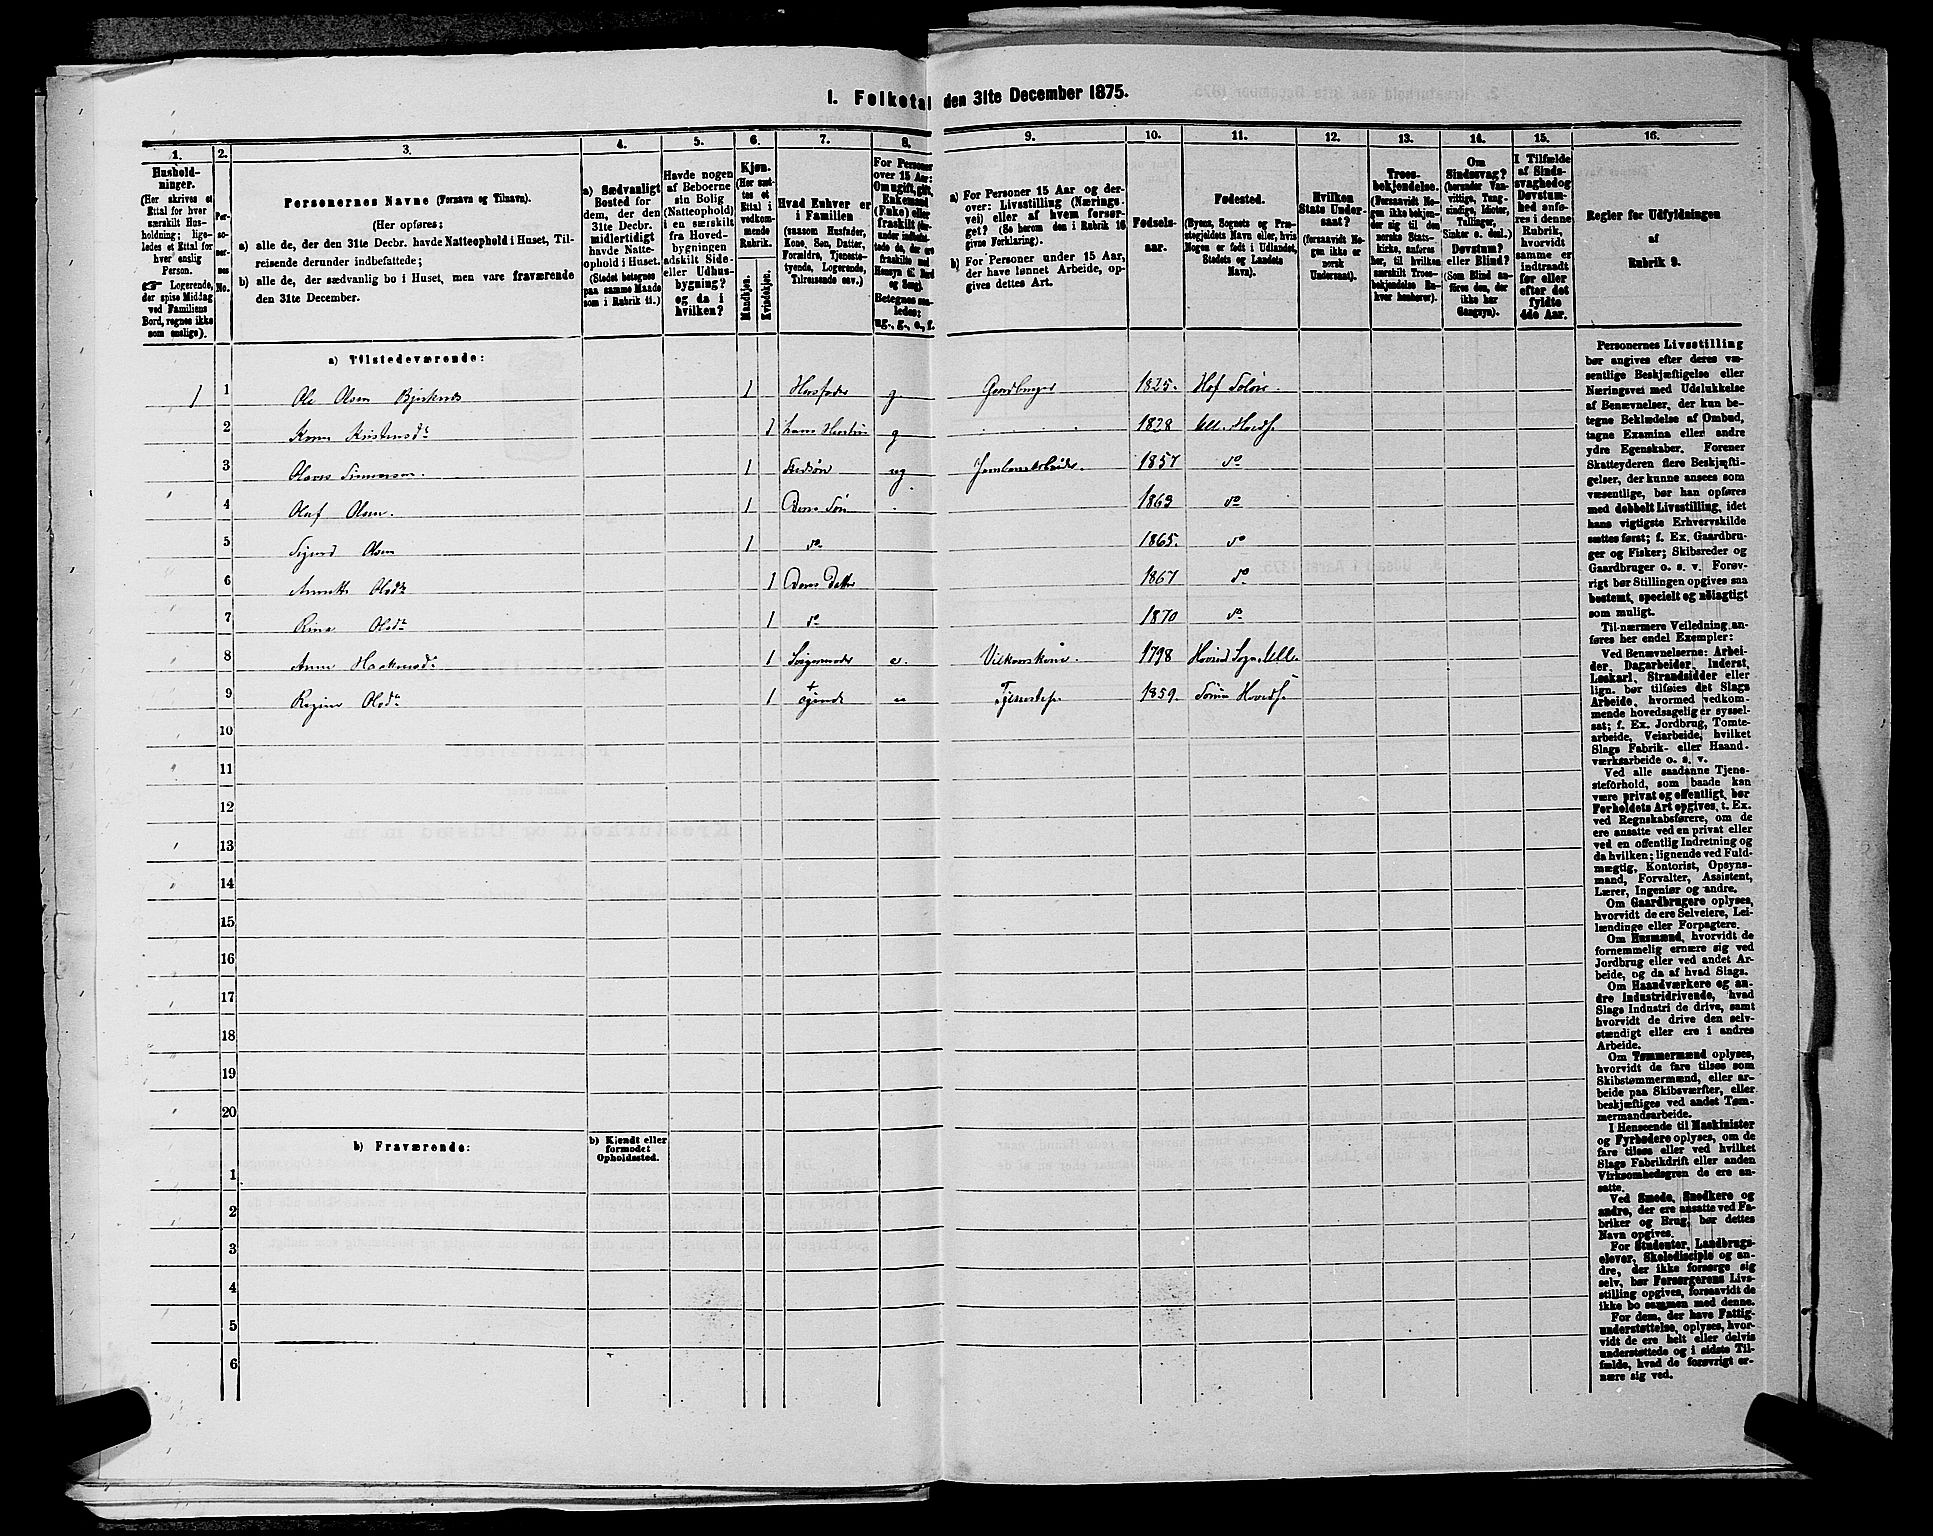 1. Folketal den 31te December 1875.
1. 2. 3. 4. 5. 6. 7. 8. 9. 10. 11. 12. 13. 14. 15. 16.
Hushold-
ninger.
(Her skrives et
Ettal for hver
særskilt Hus-
holdning; lige-
ledes et Ettal for
hver enslig
Person.
☞ Logerende,
der spise Middag
ved Familiens
Bord, regnes ikke
som enslige).
Per-
so-
ner-
nes
No.
Personernes Navne (Fornavn og Tilnavn).
(Her opføres:
a) alle de, der den 31te Decbr. havde Natteophold i Huset, Til-
reisende derunder indbefattede;
b) alle de, der sædvanlig bo i Huset, men vare fraværende
den 31te December.
a) Sædvanligt
Bosted for
dem, der den
31te Decbr.
midlertidigt
havde Natte-
ophold i Huset.
(Stedet betegnes
paa samme Maade
som i Rubrik 11.)
Havde nogen
af Beboerne
sin Bolig
(Natteophold)
i en særskilt
fra Hoved-
bygningen
adskilt Side-
eller Udhus-
bygning?
og da i
hvilken?
Kjøn.
(Her sæt-
tes et
Ettal i
vedkom-
mende
Rubrik.
Mandkjøn.
Kvindekjøn.
Hvad Enhver er
i Familien
(saasom Husfader,
Kone, Søn, Datter,
Forældre, Tjeneste-
tyende, Logerende,
Tilreisende osv.)
For Personer
over 15 Aar:
Om ugift, gift,
Enkemand
(Enke) eller
fraskilt
Betegnes saa-
ledes:
ug., g., e., f.
a) For Personer 15 Aar og der-
over: Livsstilling (Nærings-
vei) eller af hvem forsør-
get? (Se herom den i Rubrik 16
givne Forklaring).
b) For Personer under 15 Aar,
der have lønnet Arbeide, op-
gives dettes Art.
Fødsels-
aar.
Fødested.
(Byens, Sognets og Præ-
stegjeldets Navn eller, hvis
Nogen er født i Udlandet,
Stedets og Landets
Navn).
Hvilken
Stats Under-
saat?
(forsaavidt No-
gen ikke er
norsk
Undersaat).
Troes-
bekjendelse.
(Forsaavidt No-
gen ikke bekjen-
der sig til den
norske Stats-
kirke, anføres
her, til hvilken
særskilt Troes-
bekjendelse En-
hver henhører).
Om
Sindssvag?
(herunder Van-
vittige, Tung-
sindige, Idioter,
Tullinger,
Sinker o. desl.)
Døvstum?
eller Blind?
(Som Blind an-
føres den, der
ikke har
Gangsyn).
I Tilfælde
af Sinds-
svaghed og
Døvstum-
hed anfø-
res i denne
Rubrik,
hvorvidt
samme er
indtraadt
før eller
efter det
fyldte
4de Aar.
Regler for Udfyldningen
af
Rubrik 9.
a) Tilstedeværende:
1 1 Ole Olsen Bjerknes 1 Husfader g Gaardbruger 1825. Hof Soløer.
2 Karen Kristensdr 1 hans Hustru g 1828 Ull. Hovedsg
3 Olaves Simensen. 1 Stedsøn ug Jernbanearbeider. 1857 do
4 Oluf Olsen. 1 Deres Søn 1863 do
5 Sigurd Olsen 1 do 1865. do
6 Annette Olsdr 1 Deres Datter 1867 do
7 Rina Olsdr 1 do 1870 do
8 Anne Haakensdr 1 Svigermoder e. 1798 Hovind Sogn Ull.
9 Regine Olsdr 1 1859. Hovedsg
10
11
12
13
14
15
16
17
18
19
20
b) Fraværende: b) Kjendt eller
formodet
Opholdssted.
1
2
3
4
5
6
Personernes Livsstilling
bør angives efter deres væ-
sentlige Beskjæftigelse eller
Næringsvei med Udelukkelse
af Benævnelser, der kun be-
tegne Beklædelse af Ombud,
tagne Examina eller andre
ydre Egenskaber. Forener
Skatteyderen flere Beskjæfti-
gelser, der kunne ansees som
væsentlige, bør han opføres
med dobbelt Livsstilling, idet
hans vigtigste Erhvervskilde
sættes først; f. Ex. Gaardbru-
ger og Fisker; Skibsreder og
Gaardbruger o. s. v. Forøv-
rigt bør Stillingen opgives saa
bestemt, specielt og nøiagtigt
som muligt.
Til nærmere Veiledning an-
føres her endel Exempler:
Ved Benævnelserne: Arbei-
der, Dagarbeider, Inderst,
Løskarl, Strandsidder eller
lign. bør tilføies det Slags
Arbeide, hvormed vedkom-
mende hovedsagelig er syssel-
sat; f. Ex. Jordbrug, Tomte-
arbeide, Veiarbeide, hvilket
Slags Fabrik- eller Haand-
værksarbeide o. s. v.
Ved alle saadanne Tjene-
steforhold, som baade kan
være privat og offentligt, bør
Forholdets Art opgives, t. Ex.
ved Regnskabsførere, om de
ere ansatte ved en privat eller
ved en offentlig Indretning og
da hvilken; lignende ved Fuld-
mægtig, Kontorist, Opsyns-
mand, Forvalter, Assistent,
Lærer, Ingeniør og andre.
Om Gaardbrugere oplyses,
hvorvidt de ere Selveiere, Lei-
lændinge eller Forpagtere.
Om Husmænd, hvorvidt de
fornemmelig ernære sig ved
Jordbrug eller ved andet Ar-
beide, og da af hvad Slags.
Om Haandværkere og an-
dre Industridrivende, hvad
Slags Industri de drive, samt
hvorvidt de drive den selv-
stændigt eller ere i andres
Arbeide.
Om Tømmermænd oplyses,
hvorvidt de fare tilsøs som
Skibstømmermænd, eller ar-
beide paa Skibsværfter, eller
beskjæftiges ved andet Tøm-
mermandsarbeide.
I Henseende til Maskinister
og Fyrbødere oplyses, om de
fare tilsøs eller ved hvilket
Slags Fabrikdrift eller anden
Virksomhedsgren de ere an-
satte.
Ved Smede, Snedkere og
andre, der ere ansatte ved Fa-
briker og Brug, bør dettes
Navn opgives.
For Studenter, Landbrugs-
elever, Skoledisciple og an-
dre, der ikke forsørge sig
selv, bør Forsørgerens Livs-
stilling opgives, forsaavidt de
ikke bo sammen med denne.
For dem, der have Fattig-
understøttelse, oplyses, hvor-
vidt de ere helt eller delvis
understøttede og i sidste Til-
fælde, hvad de forøvrigt er-
nære sig ved.